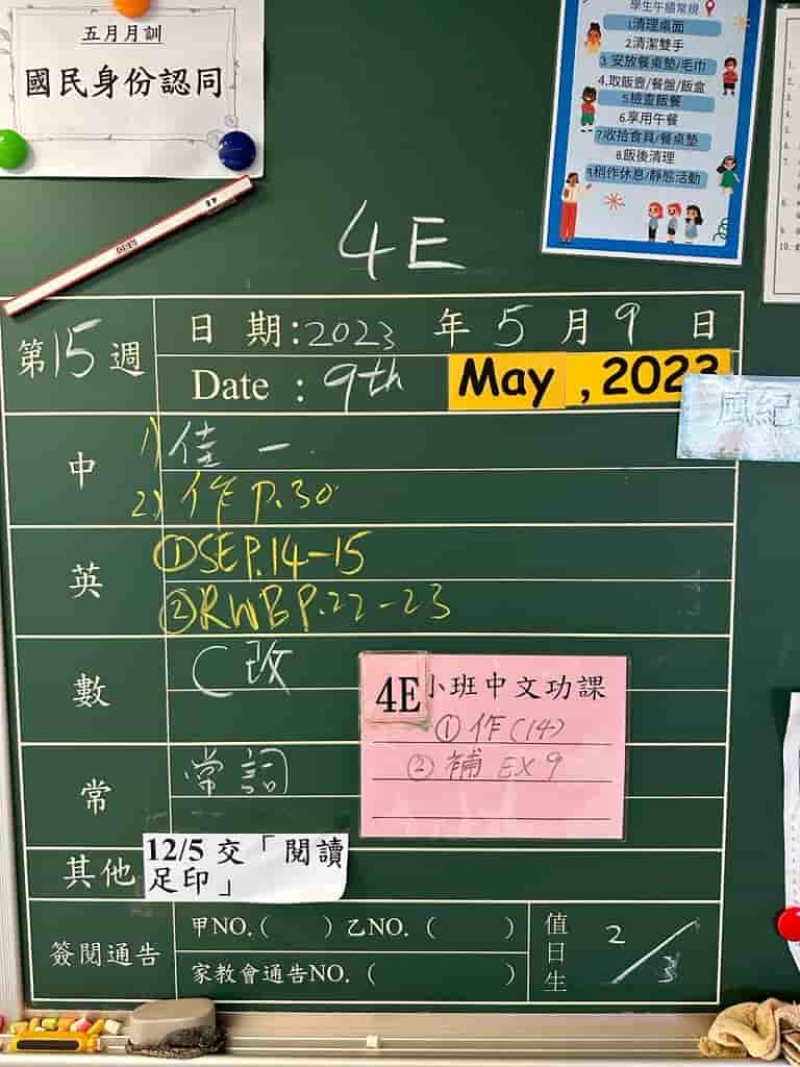 五月月訓
國民身份認同
學生午膳常規
1.清理桌面
2.清潔雙手
3.安放餐桌墊/毛巾
4.取飯壼/餐盤/飯盒
5.檢查飯餐
6.享用午餐
7.收拾食具/餐桌墊
8.飯後清理
9.稍作休息/靜態活動
4E
第15週
日 期:2023 年 5 月 9 日
Date : 9th May , 2023
風紀
中
1) 佳一.
2) 作 P.30
英
①SE P.14-15
②RWB P.22-23
數
C改
4E小班中文功課
①作(14)
②補 EX 9
常
常詞
其他
12/5 交「閱讀
足印」
簽閱通告
甲NO.( ) 乙NO. ( )
家教會通告NO. ( )
值日生
2/3